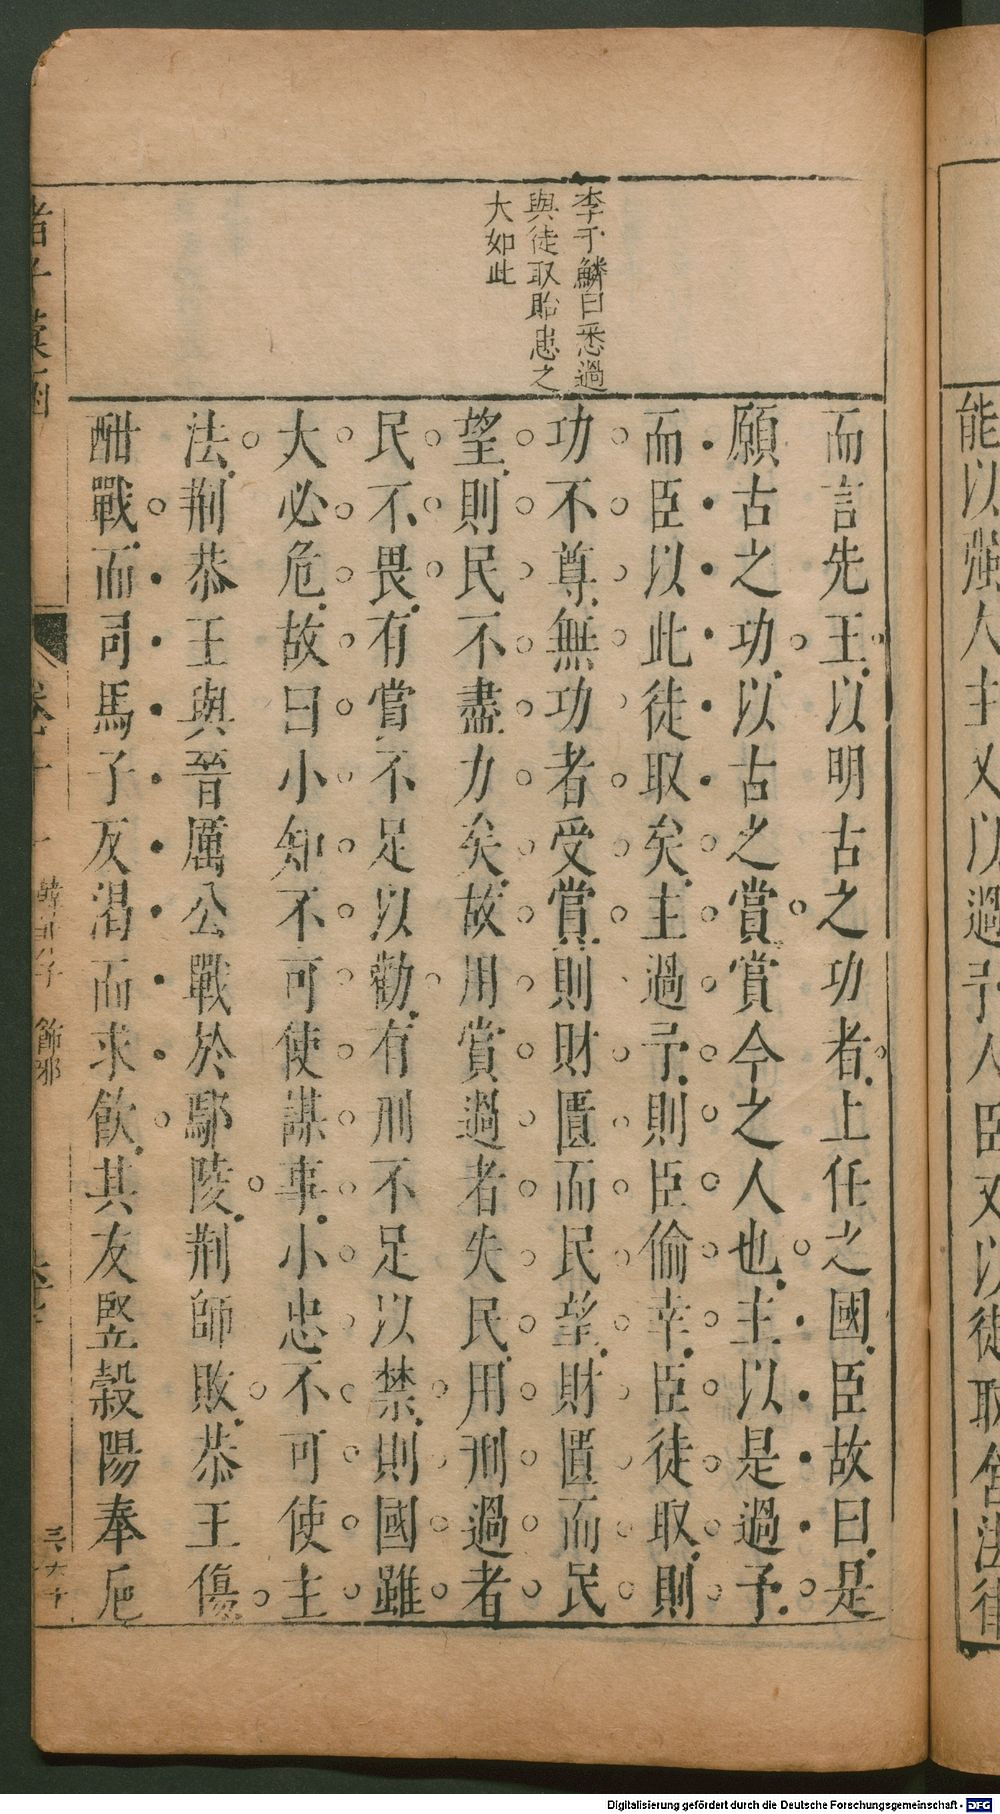 李于鱗曰悉過
與徒取貽患之
大如此
而言先王以明古之功者上任之國臣故曰是
願古之功以古之賞賞今之人也主以是過予
而臣以此徒取矣主過予則臣偷幸臣徒取則
功不尊無功者受賞則財匱而民望財匱而民
望則民不盡力矣故用賞過者失民用刑過者
民不畏有賞不足以勸有刑不足以禁則國雖
大必危故曰小知不可使謀事小忠不可使主
法荆恭王與晉厲公戰於鄢陵荆師敗恭王傷
酣戰而司馬子反渴而求飲其友豎穀陽奉巵
韓非子 飾邪
能以強人主又以過予人臣又以徒取舍法律
Digitalisierung gefördert durch die Deutsche Forschungsgemeinschaft - DFG